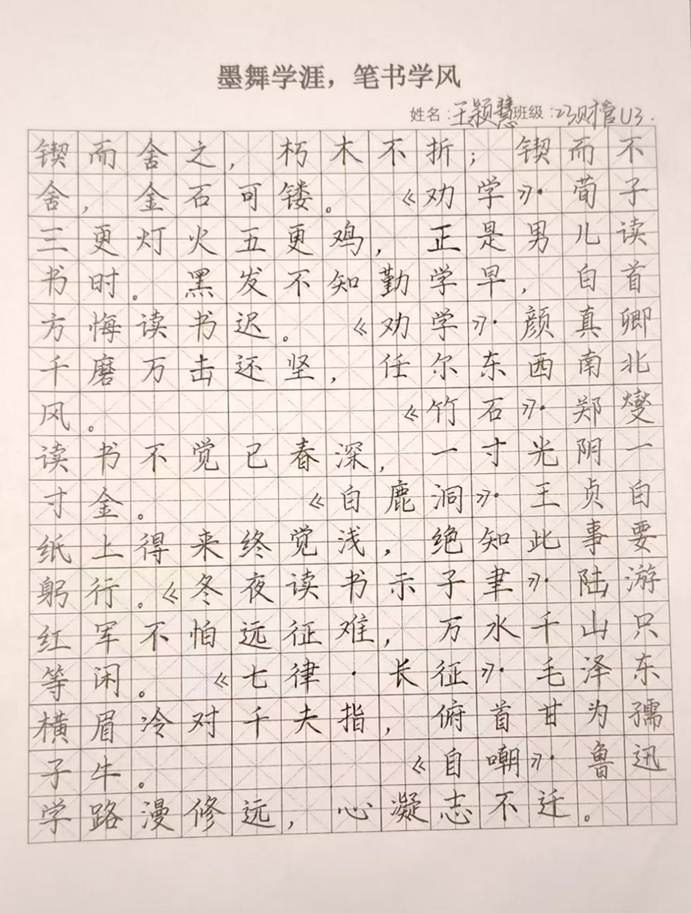 墨舞学涯，笔书学风
姓名：王颖慧班级：23财管U3.
锲而舍之，朽木不折；锲而不
舍，金石可镂。《劝学》·荀子
三更灯火五更鸡，正是男儿读
书时。黑发不知勤学早，白首
方悔读书迟。《劝学》·颜真卿
千磨万击还坚，任尔东西南北
风。《竹石》·郑燮
读书不觉已春深，一寸光阴一
寸金。《白鹿洞》·王贞白
纸上得来终觉浅，绝知此事要
躬行。《冬夜读书示子聿》·陆游
红军不怕远征难，万水千山只
等闲。《七律·长征》·毛泽东
横眉冷对千夫指，俯首甘为孺
子牛。《自嘲》·鲁迅
学路漫修远，心凝志不迁。